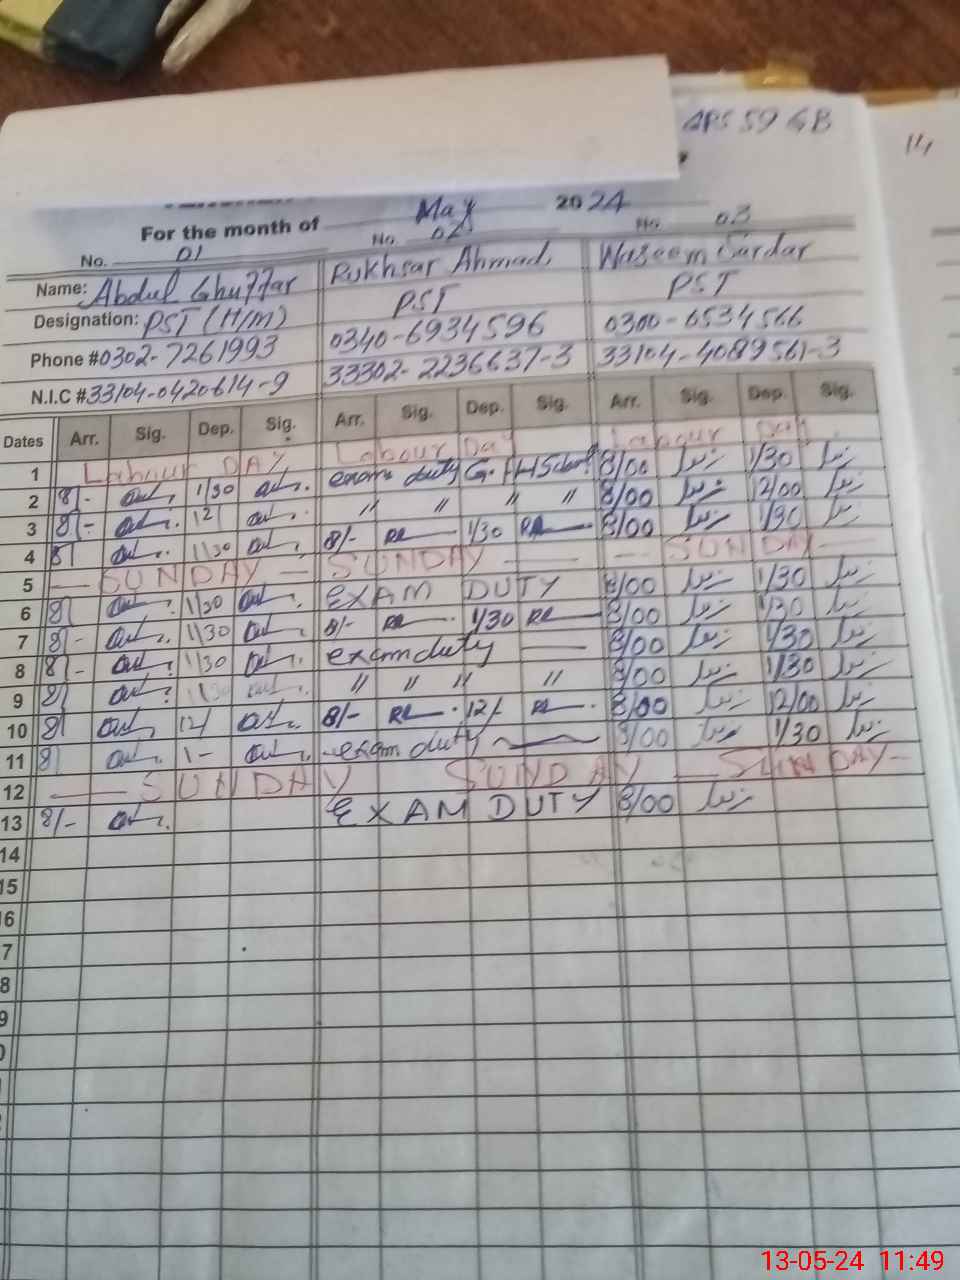 GPS 59 GB
14
For the month of May 2024
No. 01 No. 02 No. 03
Name: Abdul Ghuffar Rukhsar Ahmad, Waseem Sardar
Designation: PST (H/M) PST PST
Phone #0302-7261993 0340-6934596 0300-6534566
N.I.C #33104-0420614-9 33302-2236637-3 33104-4089561-3
Dates Arr. Sig. Dep. Sig. Arr. Sig. Dep. Sig. Arr. Sig. Dep. Sig.
1 Labour DAY Labour Day Labour Day
2 8/- 1/30 exam duty G. H/School 8/00 1/30
3 8/- 12/ " " " " 8/00 12/00
4 8/ 1/30 8/- RA 1/30 RA 8/00 1/30
5 — SUNDAY — SUNDAY — — SUNDAY —
6 8/ 1/30 EXAM DUTY 8/00 1/30
7 8/- 1/30 8/- RA 1/30 RA 8/00 1/30
8 8/- 1/30 exam duty — 8/00 1/30
9 8/ 1/30 " " " " 8/00 1/30
10 8/ 12/ 8/- RA 12/- RA 8/00 12/00
11 8/ 1- exam duty 8/00 1/30
12 — SUNDAY SUNDAY — SUNDAY —
13 8/- EXAM DUTY 8/00
14
15
16
7
8
9
0
13-05-24 11:49